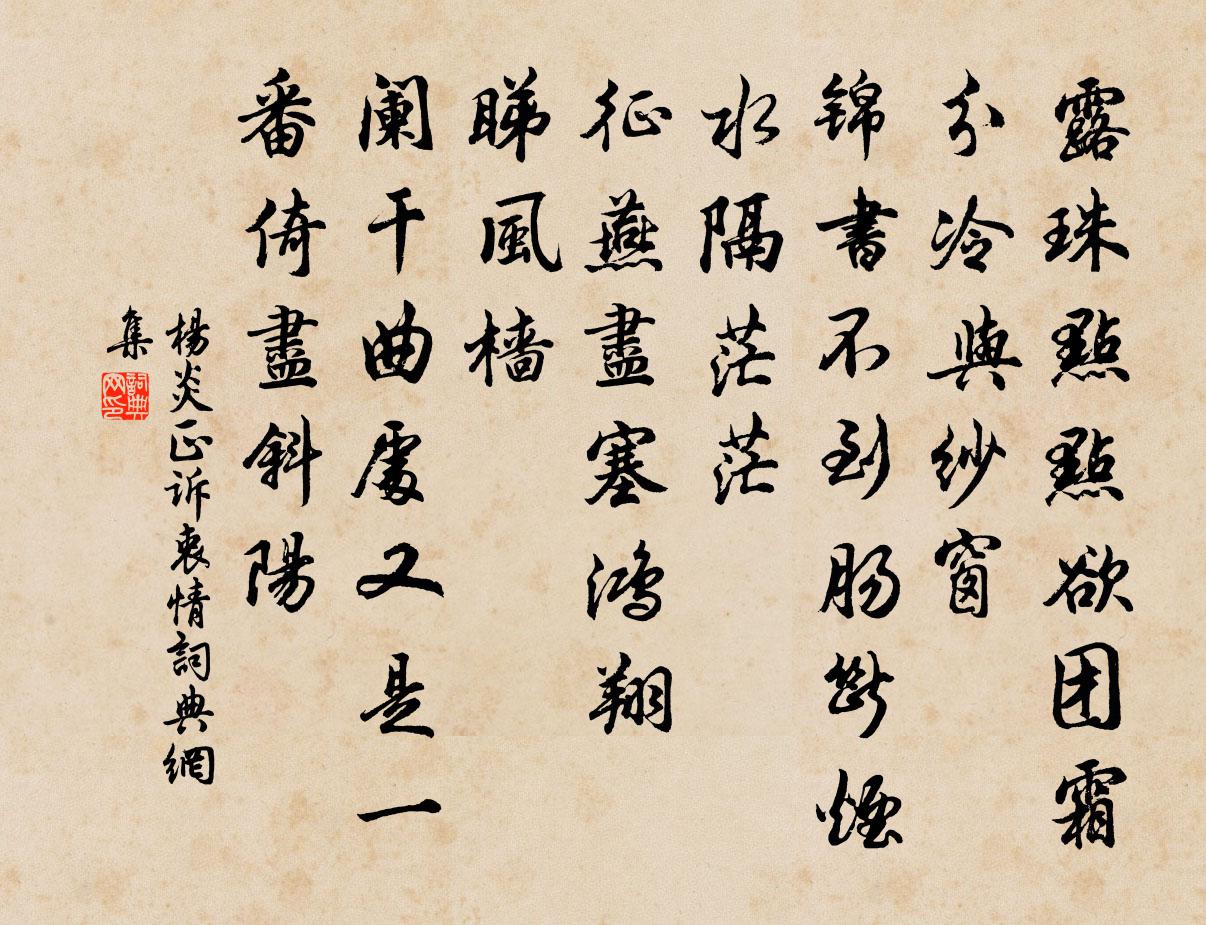 露珠點點欲团霜
分冷與紗窗
錦書不到肠斷煙
水隔茫茫
征燕盡塞鴻翔
睇風檣
阑干曲處又是一
番倚盡斜陽
楊炎正诉衷情詞典網
集
詞典
网印